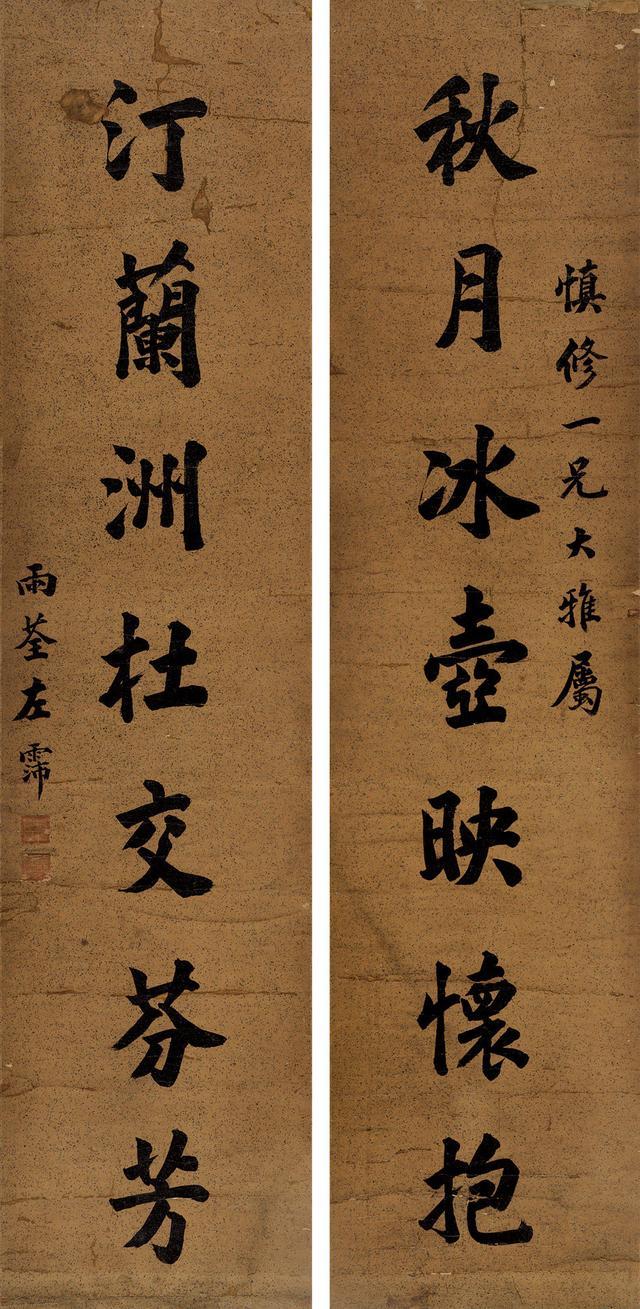 慎修一兄大雅屬
秋月冰壺映懷抱
汀蘭洲杜交芬芳
雨荃左霈